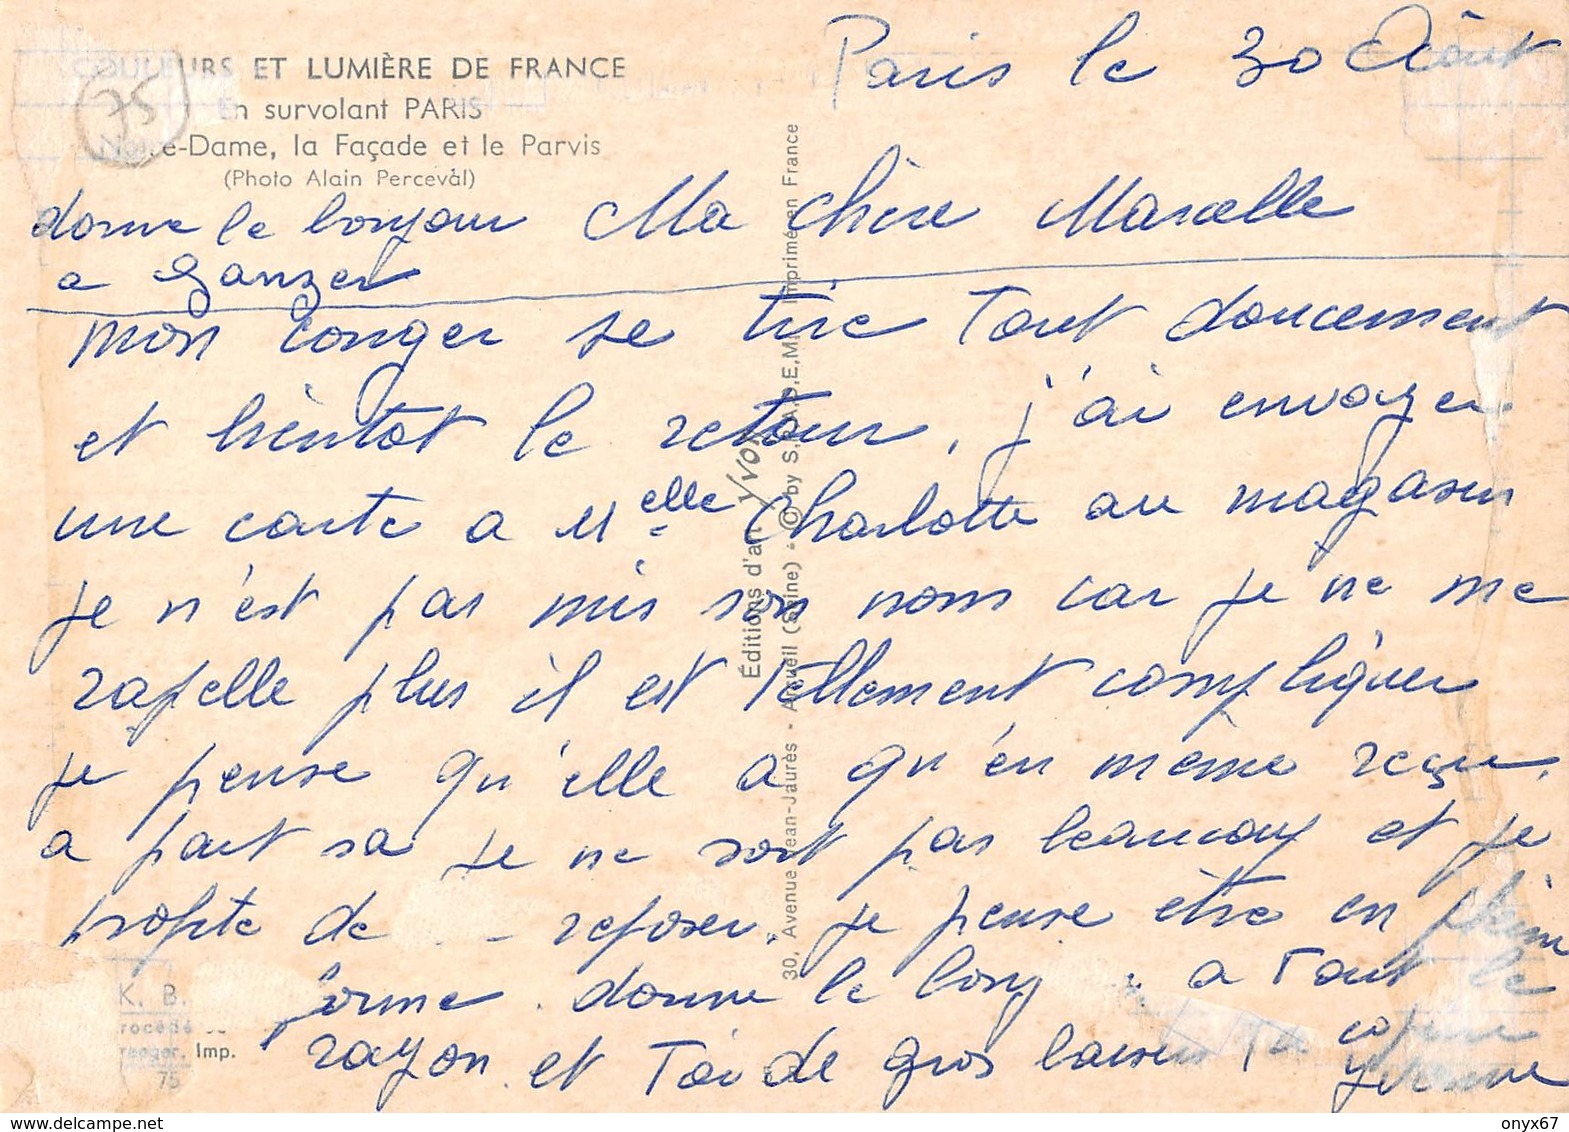 Paris le 30 Août
COULEURS ET LUMIÈRE DE FRANCE
En survolant PARIS
75
Notre-Dame, la Façade et le Parvis
(Photo Alain Perceval)
donne le bonjour
a Ganzer
Ma chère Marcelle
mon conger se tire Tout doucement
et bientot le retour, j'ai envoyer
une carte a Melle Charlotte au magasin
je n'est pas mis son nom car je ne me
rapelle plus il est tellement compliquer
je pense qu'elle a qu'en même reçu,
a part sa je ne sort pas beaucoup et je
profite de reposer, je pense être en pleine
forme. donne le bonj a Tout le
rayon et Toi de gros baiser Ta copine
Yvonne
Éditions d'art YVON
30, Avenue Jean-Jaurès - Arcueil (Seine) - © by S.P.A.D.E.M. Imprimé en France
K. B.
rocédé
Imp.
75
onyx67